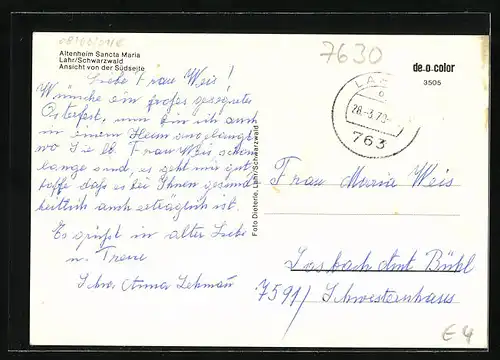 Altenheim Sancta Maria
Lahr/Schwarzwald
Ansicht von der Südseite
Liebe Frau Weis!
Wünsche ein frohes gesegnetes
Osterfest, nun bin ich auch
in einem Heim angelangt
wo Sie lb. Frau Weis schon
lange sind, es geht mir gut
hoffe daß es bei Ihnen gesund-
heitlich auch erträglich ist.
Es grüßt in alter Liebe
u. Treue
Anna Lehmann
Foto Dieterle, Lahr/Schwarzwald
7630
de-o-color
3505
28.-3.79
763
Frau Maria Weis
Sasbach Amt Bühl
7591/ Schwesternhaus
€4